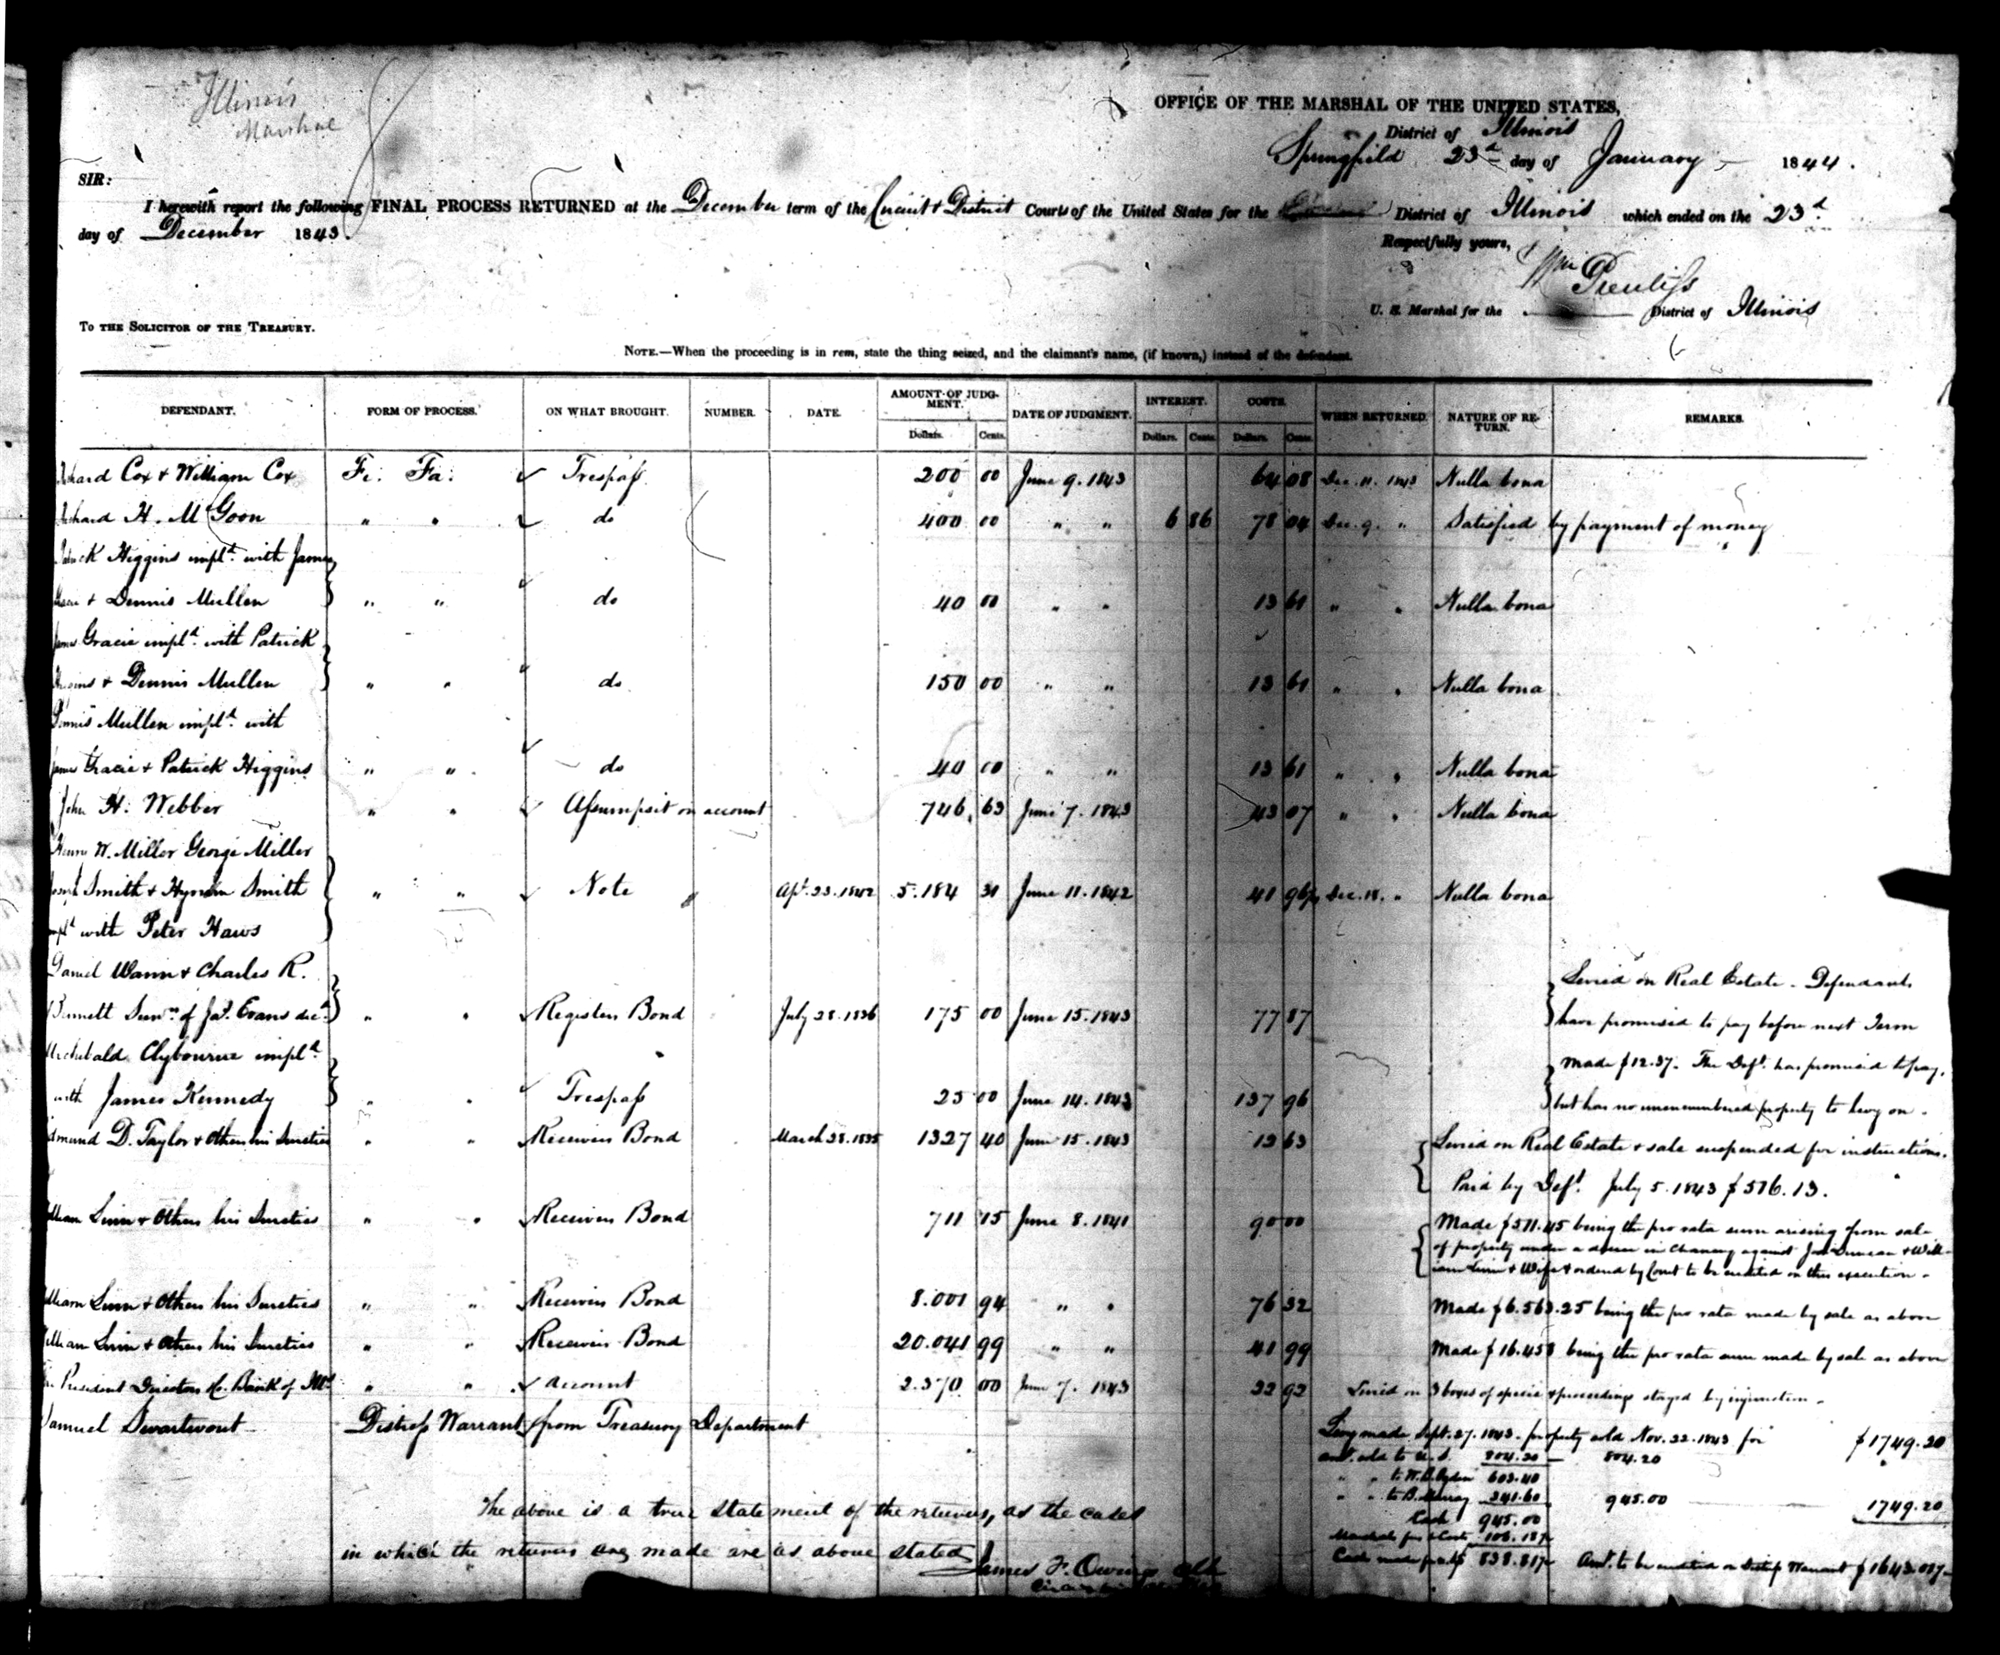 Illinois
Marshal
OFFICE OF THE MARSHAL OF THE UNITED STATES,
District of Illinois
Springfield 23d day of January 1844.
SIR:
I herewith report the following FINAL PROCESS RETURNED at the December term of the Circuit & District Courts of the United States for the District of Illinois which ended on the 23d
day of December 1843.
Respectfully yours,
Wm Prentiss
U. S. Marshal for the District of Illinois
TO THE SOLICITOR OF THE TREASURY.
NOTE.—When the proceeding is in rem, state the thing seized, and the claimant's name, (if known,) instead of the defendant.
DEFENDANT. FORM OF PROCESS. ON WHAT BROUGHT. NUMBER. DATE. AMOUNT OF JUDGMENT. DATE OF JUDGMENT. INTEREST. COSTS. WHEN RETURNED. NATURE OF RETURN. REMARKS.
Dollars. Cents. Dollars. Cents. Dollars. Cents.
Richard Cox & William Cox Fi: Fa: Trespass 200 00 June 9. 1843 64 08 Dec. 11. 1843 Nulla bona
Richard H. McGoon " " do 400 00 " " 6 86 78 04 Dec. 9. " Satisfied by payment of money
Patrick Higgins impld. with James
Gracie & Dennis Mullen " " do 40 00 " " 13 61 " " Nulla bona
James Gracie impld. with Patrick
Higgins & Dennis Mullen " " do 150 00 " " 13 61 " " Nulla bona
Dennis Mullen impld. with
James Gracie & Patrick Higgins " " do 40 00 " " 13 61 " " Nulla bona
John H. Webber " " Assumpsit on account 746. 63 June 7. 1843 43 07 " " Nulla bona
Henry W. Miller George Miller
Joseph Smith & Hyrum Smith " " Note Apl. 23. 1842 5.184 31 June 11. 1842 41 96½ Dec. 18. " Nulla bona
impld with Peter Haws
Daniel Wann & Charles R.
Bennett Survrs of Jas. Evans decd. " " Registers Bond July 28. 1836 175 00 June 15. 1843 77 87
Levied on Real Estate - Defendants
have promised to pay before next Term
Archibald Clybourne impld.
with James Kennedy " " Trespass 25 00 June 14. 1843 137 96
Made $12.37. The Deft. has promised to pay,
but has no unencumbered property to levy on.
Edmund D. Taylor & Others his Sureties " " Receivers Bond March 28. 1835 1327 40 June 15. 1843 13 63 Levied on Real Estate & sale suspended for instructions.
Paid by Deft. July 5. 1843 $576.13.
William Linn & Others his Sureties " " Receivers Bond 711 15 June 8. 1841 90 00 Made $511.45 being the pro rata sum arising from sale
of property under a decree in Chancery against Jos. Duncan & Will-
iam Linn & Wife & ordered by Court to be credited on this execution.
William Linn & Others his Sureties " " Receivers Bond 8.001 94 " " 76 32 Made $6.563.25 being the pro rata made by sale as above
William Linn & Others his Sureties " " Receivers Bond 20.041 99 " " 41 99 Made $16.458 being the pro rata sum made by sale as above
The President Directors &c. Bank of Ills " " Account 2.370 00 June 7. 1843 32 92 Levied on 3 boxes of specie & proceedings stayed by injunction.
Samuel Swartwout Distress Warrant from Treasury Department
Levy made Sept. 27. 1843. property sold Nov. 22. 1843 for $1749.20
amt. sold to U. S. 804.20 804.20
" " to W. B. Ogden 603.40
" " to B. Murray 341.60 945.00 1749.20
Cash 945.00
Marshals fees & Costs 106.18½
Cash made 838.81½ Amt. to be credited on Distress Warrant $1643.01½
The above is a true statement of the returns, as the cases
in which the returns are made are as above stated
James F. Owings Clk